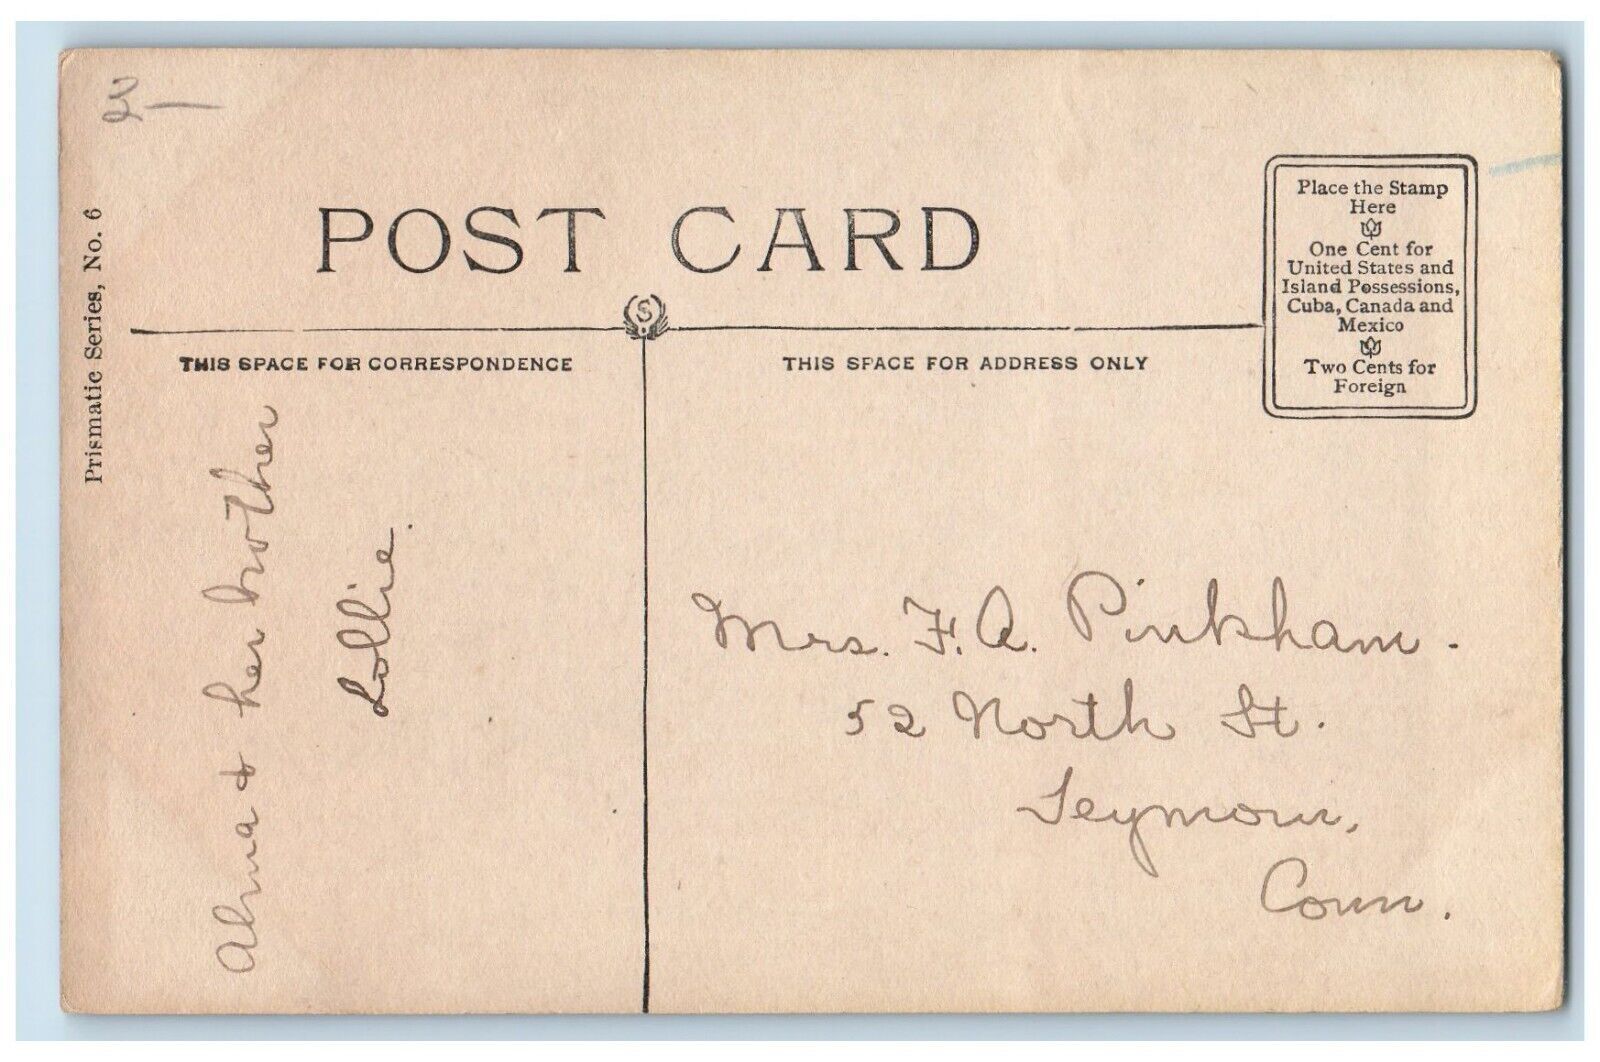 2—
Prismatic Series, No. 6
POST CARD
S
THIS SPACE FOR CORRESPONDENCE
THIS SPACE FOR ADDRESS ONLY
Place the Stamp
Here
One Cent for
United States and
Island Possessions,
Cuba, Canada and
Mexico
Two Cents for
Foreign
Alma & her brother
Lollie.
Mrs. F. A. Pinkham.
52 North St.
Seymour,
Conn.